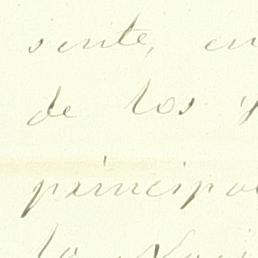 sente, en
de los y
principa
la